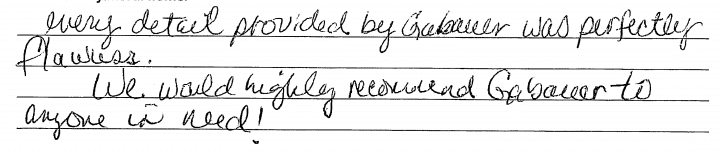 every detail provided by Gabauer was perfectly
flawless.
We would highly recommend Gabauer to
anyone in need!